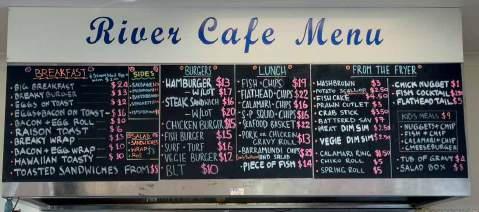 River Cafe Menu
BREAKFAST
BIG BREAKFAST $20
BREAKY BURGER $13
EGGS ON TOAST $12
EGGS+BACON ON TOAST $16
BACON + EGG ROLL
RAISON TOAST $6
BREAKY WRAP
BACON+EGG WRAP $10
HAWAIIAN TOASTY $10
TOASTED SANDWICHES FROM $8
SIDES
SALAD
SANDWICHES
WRAPS
BURGERS
HAMBURGER $13
W/LOT $17
STEAK SANDWICH $16
W/LOT $20
CHICKEN BURGER $15
FISH BURGER $15
SURF-TURF $16
VEGIE BURGER $12
BLT $10
LUNCH
FISH-CHIPS $19
FLATHEAD-CHIPS
CALAMARI-CHIPS $16
S+P SQUID-CHIPS $16
SEAFOOD BASKET $22
PORK OR CHICKEN
GRAVY ROLL $13
BARRAMUNDI CHIPS
AND SALAD
PIECE OF FISH $14
FROM THE FRYER
HASHBROWN $3
POTATO SCALLOP $2.50
FISH CAKE $4.50
PRAWN CUTLET
CRAB STICK $3.50
BATTERED SAV $7
MEAT DIM SIM $2.50
VEGIE DIM SIM
CALAMARI RING $1.50
CHIKO ROLL $5
SPRING ROLL $5
CHICK NUGGET $1
FISH COCKTAIL
FLATHEAD TAIL $5
KIDS MEALS $9
NUGGETS+CHIP
FISH+CHIP
CALAMARI+CHIP
CHEESEBURGER
TUB OF GRAVY $4
SALAD BOX $8